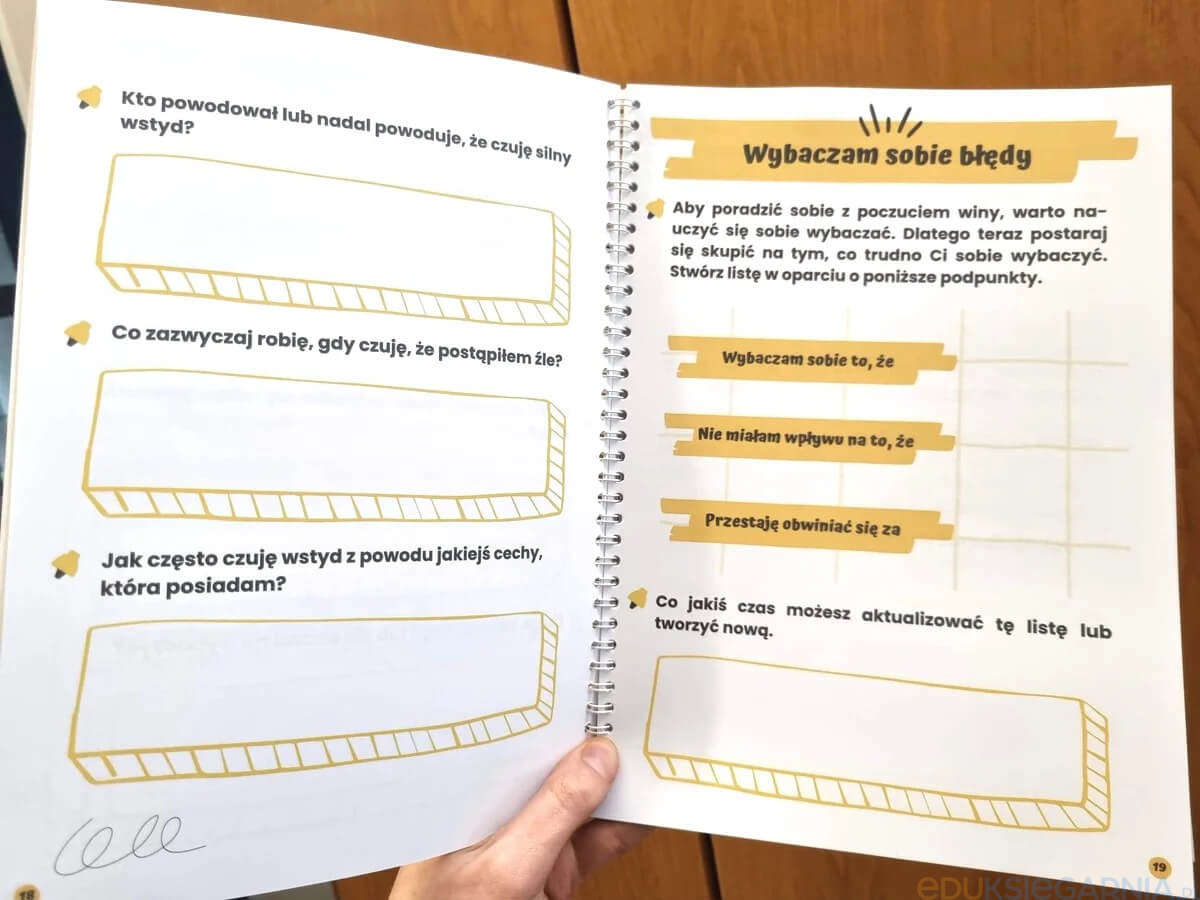 Kto powodował lub nadal powoduje, że czuję silny
wstyd?
Co zazwyczaj robię, gdy czuję, że postąpiłem źle?
Jak często czuję wstyd z powodu jakiejś cechy,
która posiadam?
18
Wybaczam sobie błędy
Aby poradzić sobie z poczuciem winy, warto na-
uczyć się sobie wybaczać. Dlatego teraz postaraj
się skupić na tym, co trudno Ci sobie wybaczyć.
Stwórz listę w oparciu o poniższe podpunkty.
Wybaczam sobie to, że
Nie miałam wpływu na to, że
Przestaję obwiniać się za
Co jakiś czas możesz aktualizować tę listę lub
tworzyć nową.
19
EDUKSIĘGARNIA